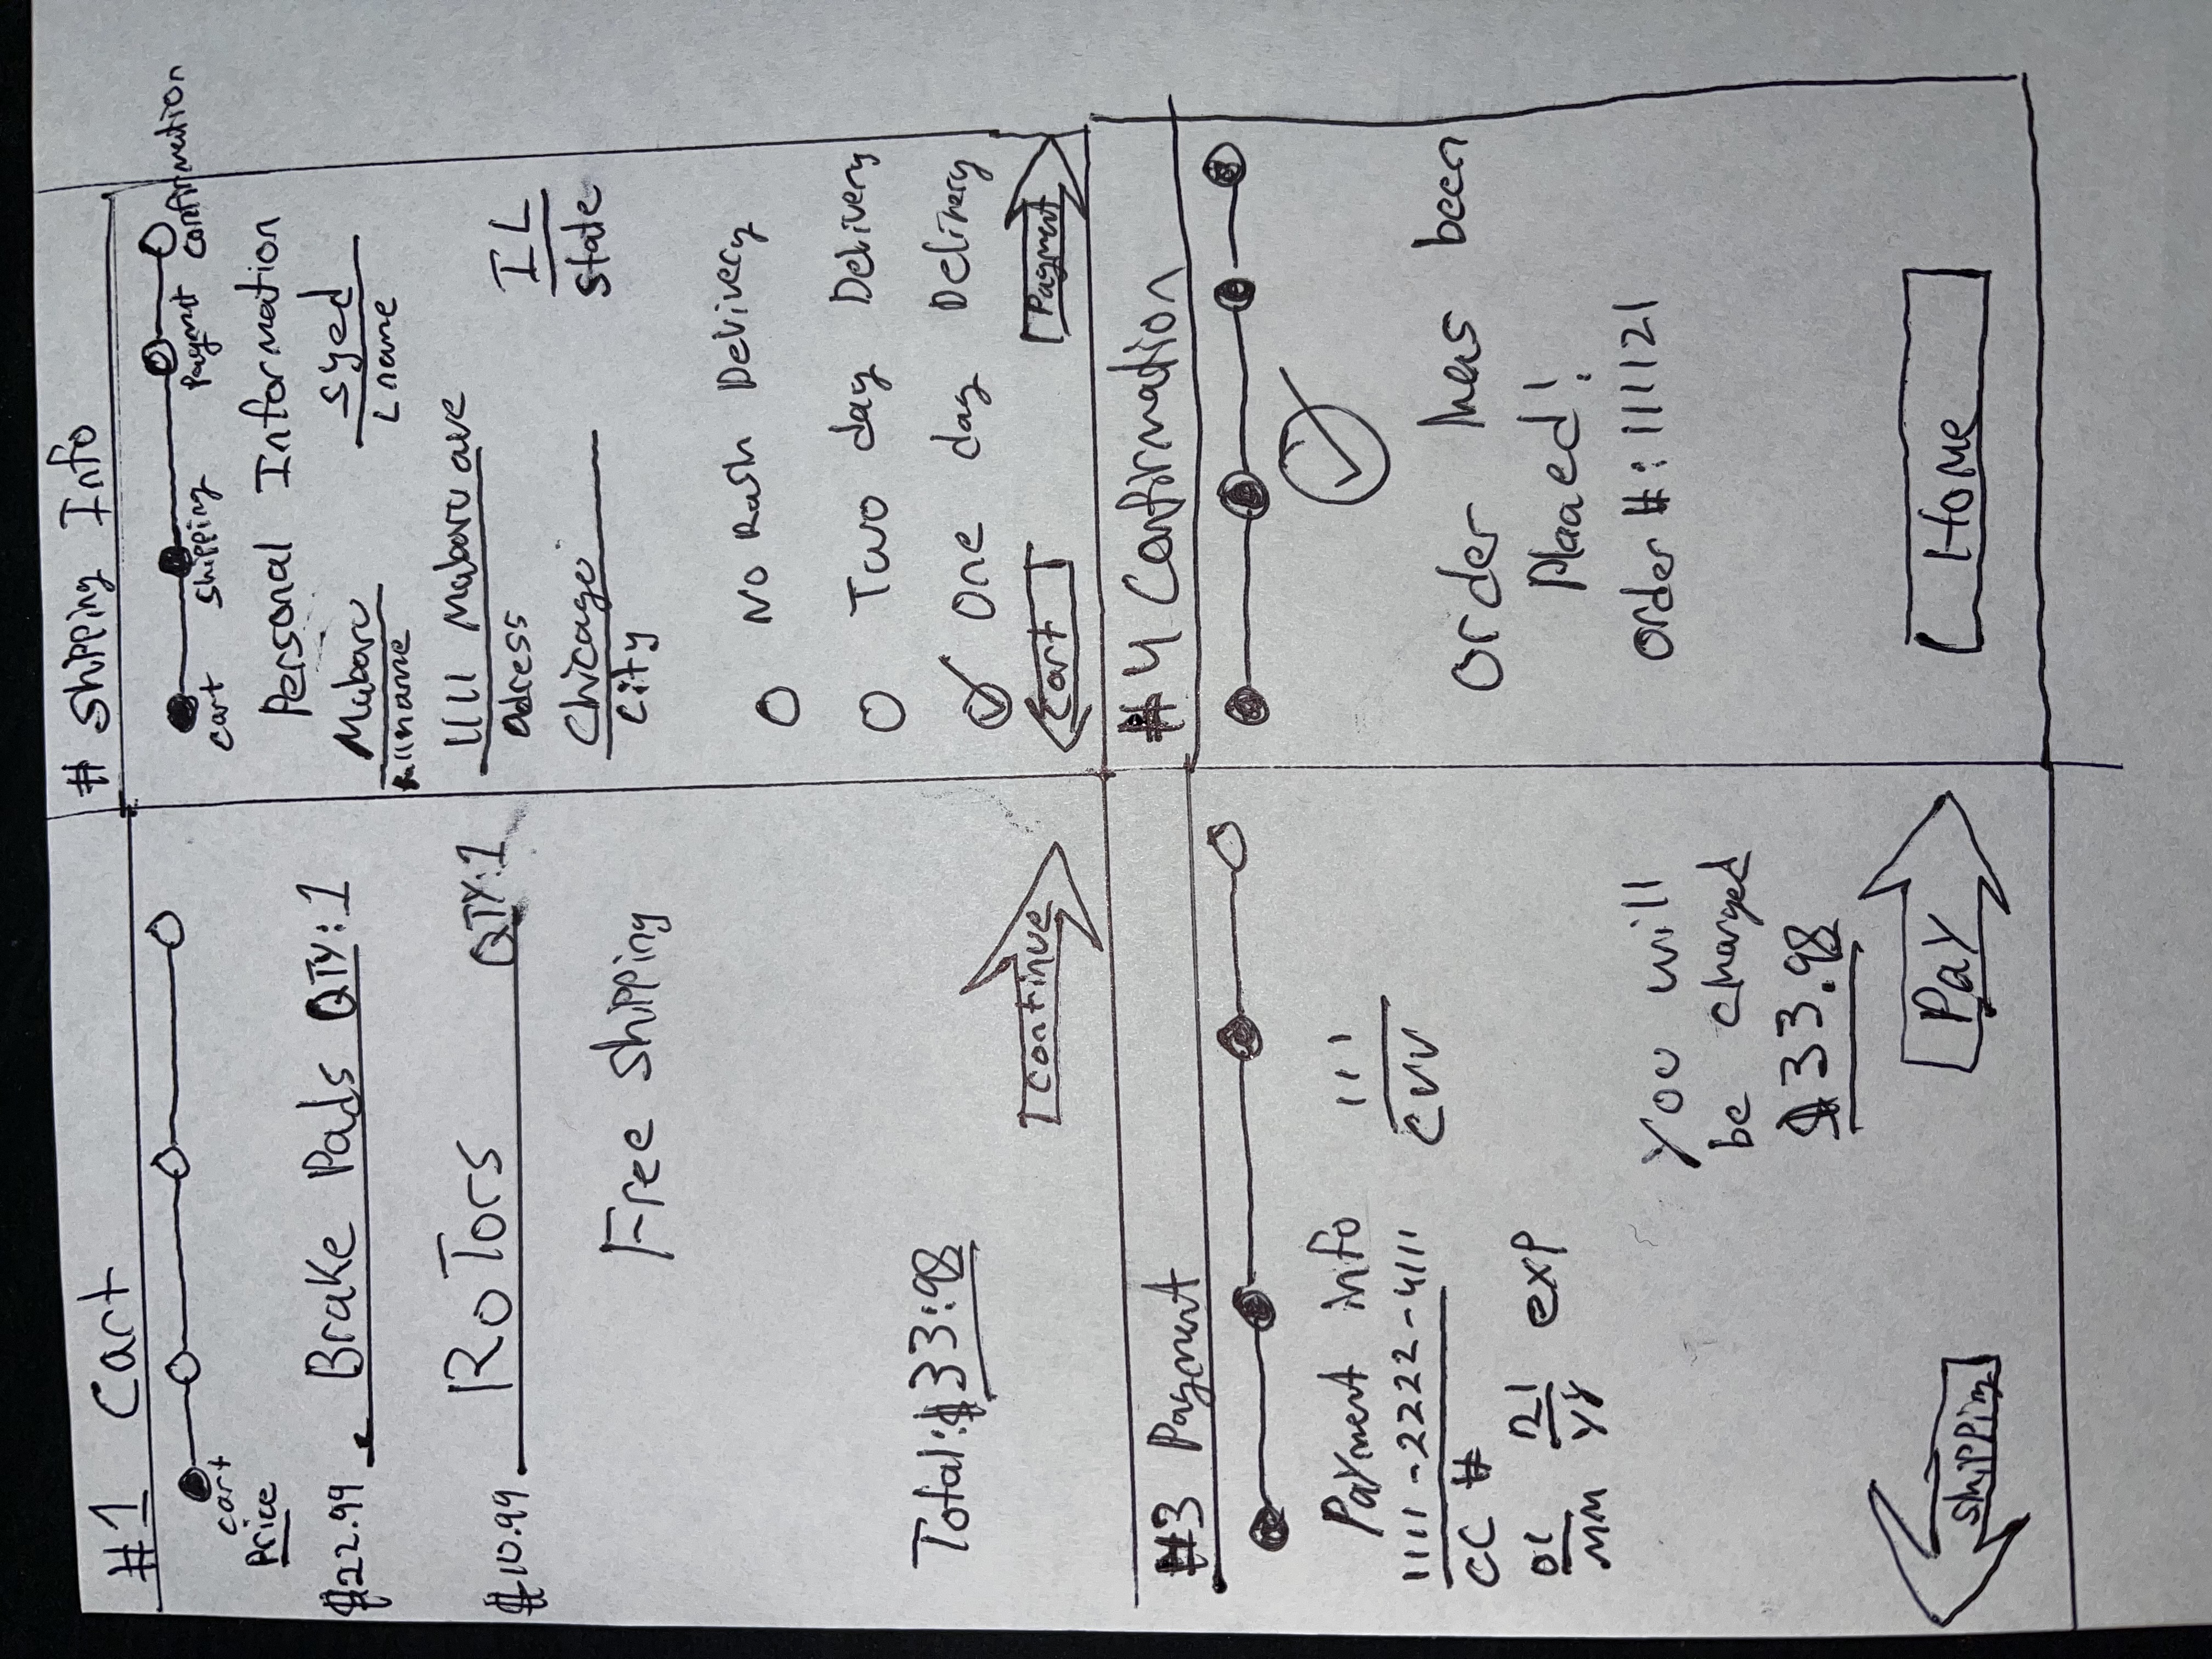 #1 Cart
cart
Price
$22.99 Brake Pads QTY: 1
$10.99 RoTors QTY: 1
Free Shipping
Total: $33:98
Continue
# Shipping Info
cart Shipping Payment Confirmation
Personal Information
Mubaru Syed
Lname
1111 Mubaru ave
Adress
IL
State
Chicago
City
No Rush Delivery
Two day Delivery
One day Delivery
Cart Payment
#3 Payment
Payment info
111
CVV
1111-2222-4111
CC #
01 21 exp
MM YY
You will
be charged
$33.98
Shipping PAY
#4 Confirmation
Order has been
Plaaed!
Order #: 111121
Home